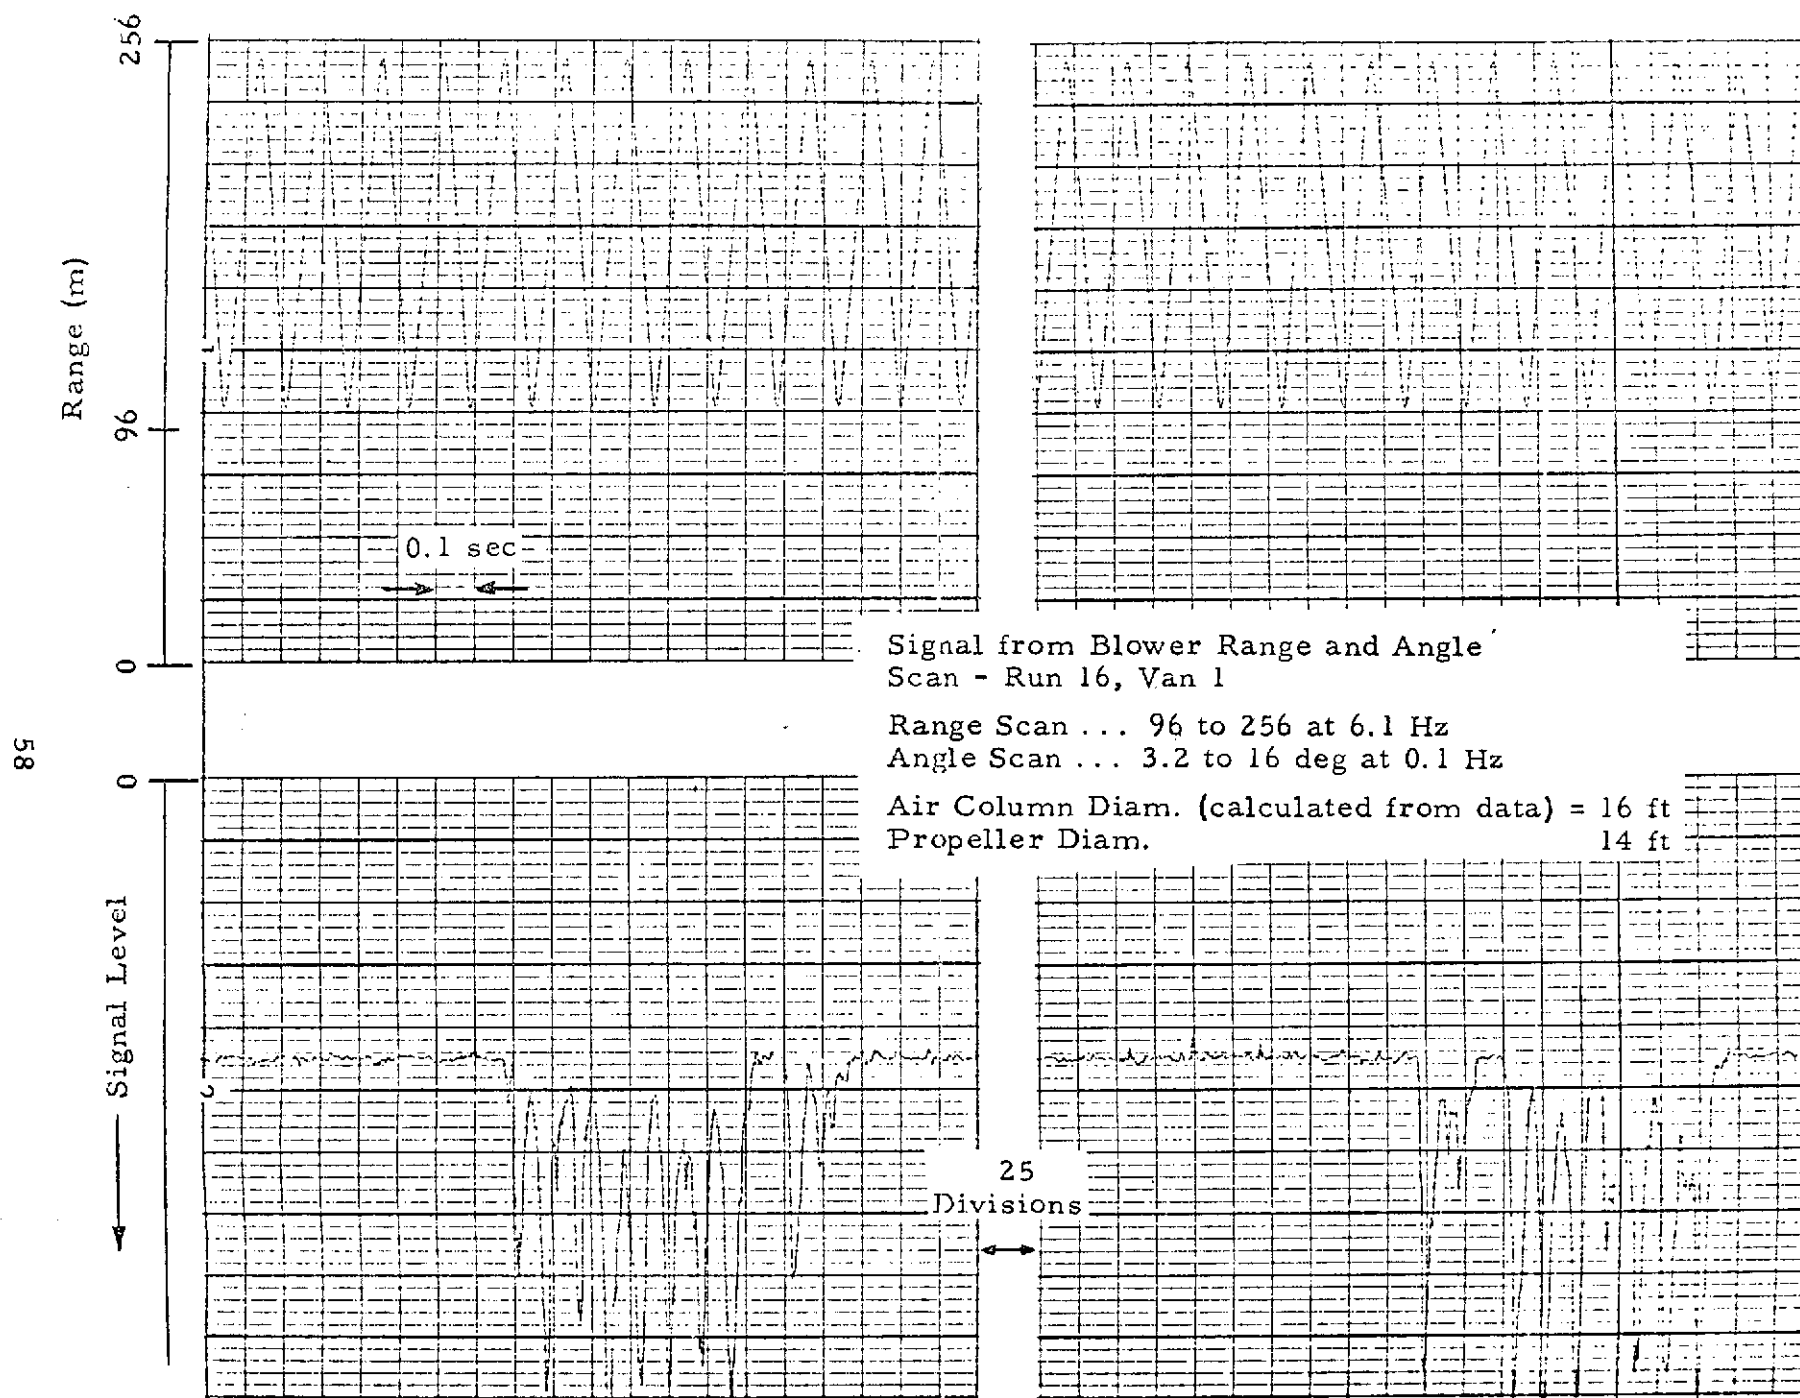 256
Range (m)
96
0.1 sec
0
Signal from Blower Range and Angle
Scan - Run 16, Van 1
Range Scan ... 96 to 256 at 6.1 Hz
Angle Scan ... 3.2 to 16 deg at 0.1 Hz
Air Column Diam. (calculated from data) = 16 ft
Propeller Diam. 14 ft
58
0
Signal Level
25
Divisions
1
2